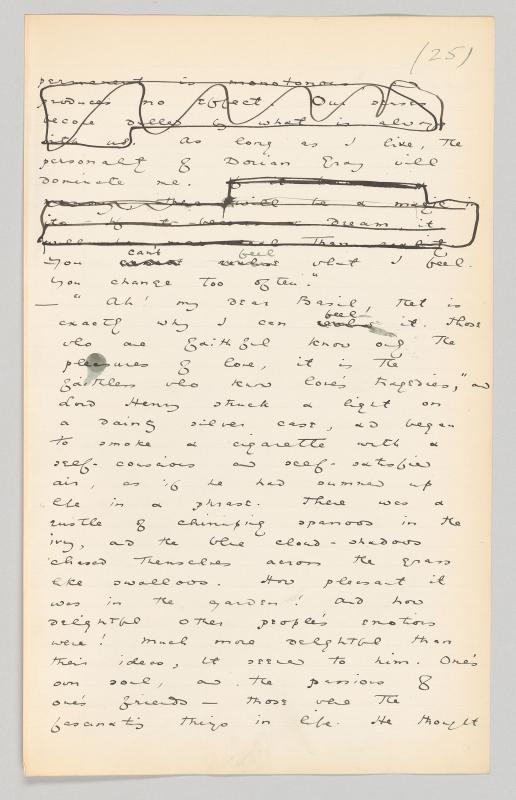 (25)
permanent is monotonous
produces no effect. Our senses
become dulled by what is always
with us. As long as I like, the
personality of Dorian Gray will
dominate me.
memory, there will be a magic in
its
will be more real than reality
You can't feel what I feel.
You change too often."
— "Ah! my dear Basil, that is
exactly why I can feel it. Those
who are faithful know only the
pleasures of love, it is the
faithless who know love's tragedies," and
Lord Henry struck a light on
a dainty silver case, and began
to smoke a cigarette with a
self-conscious and self-satisfied
air, as if he had summed up
life in a phrase. There was a
rustle of chirruping sparrows in the
ivy, and the blue cloud-shadows
chased themselves across the grass
like swallows. How pleasant it
was in the garden! And how
delightful other people's emotions
were! Much more delightful than
their ideas, it seemed to him. One's
own soul, and the passions of
one's friends — those were the
fascinating things in life. He thought